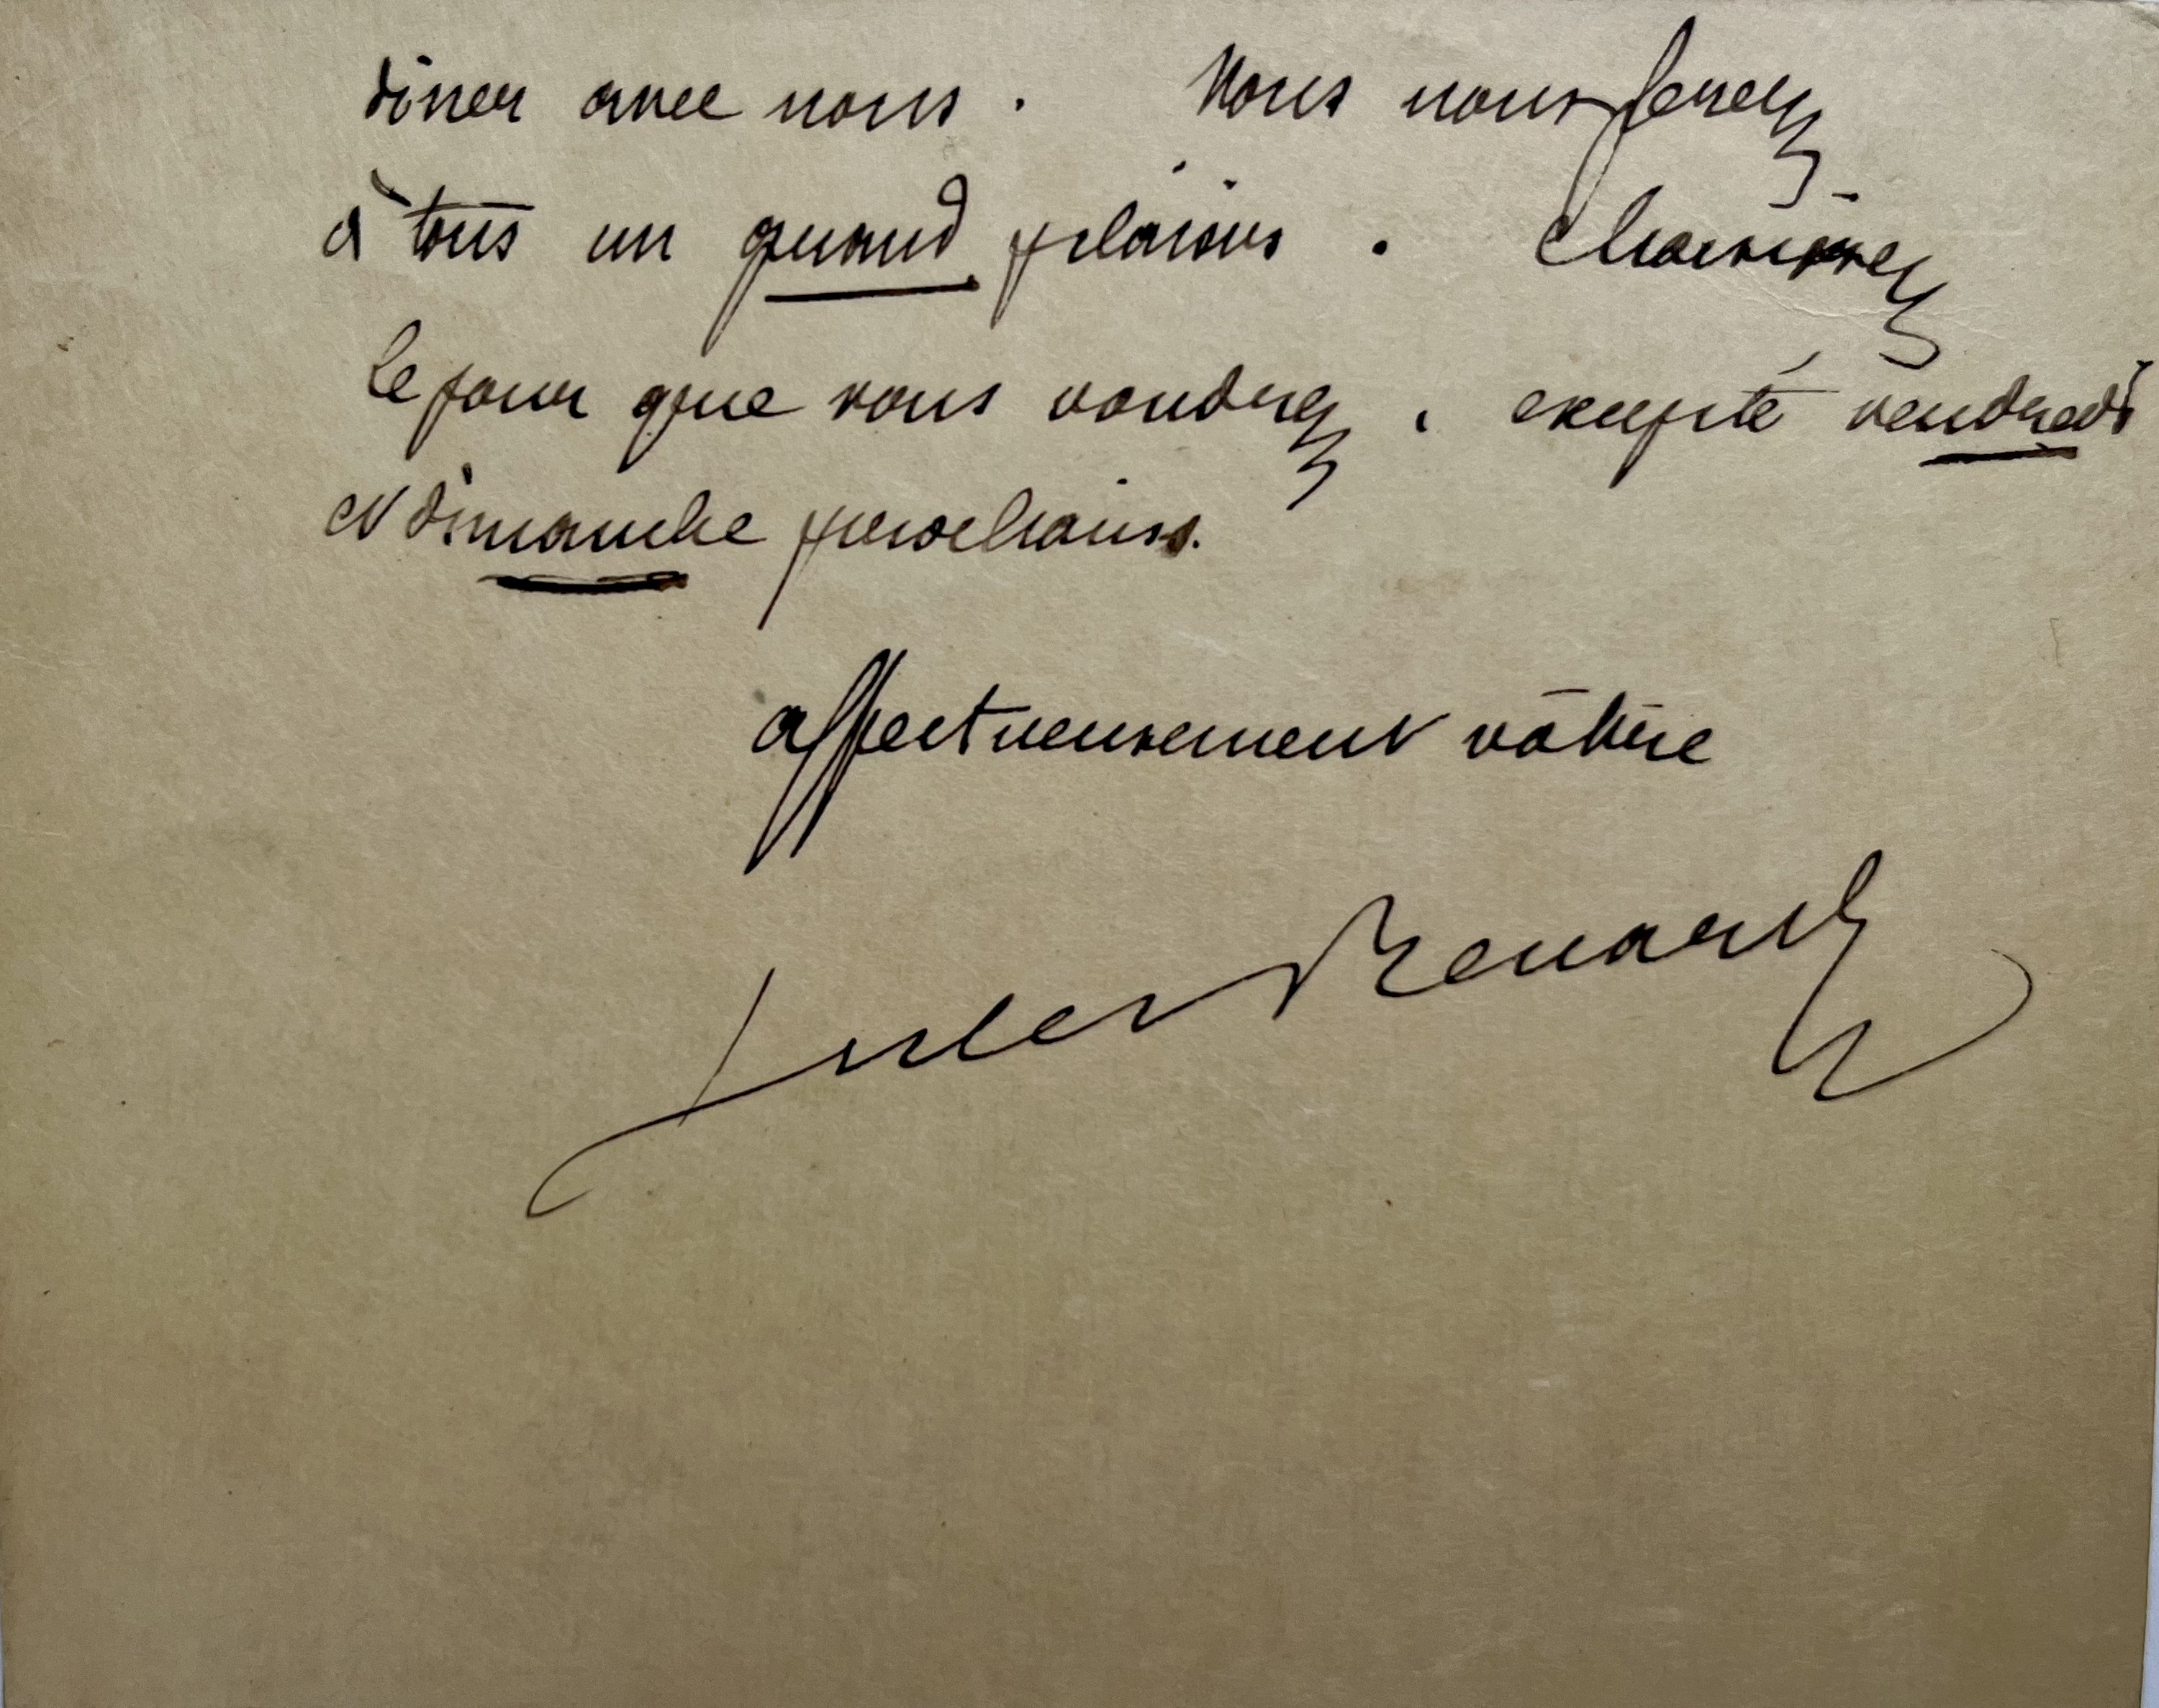 dîner avec nous. Vous nous ferez
à tous un grand plaisir. Choisissez
le jour que vous voudrez, excepté vendredi
et dimanche prochains.
affectueusement vôtre
Jules Renard